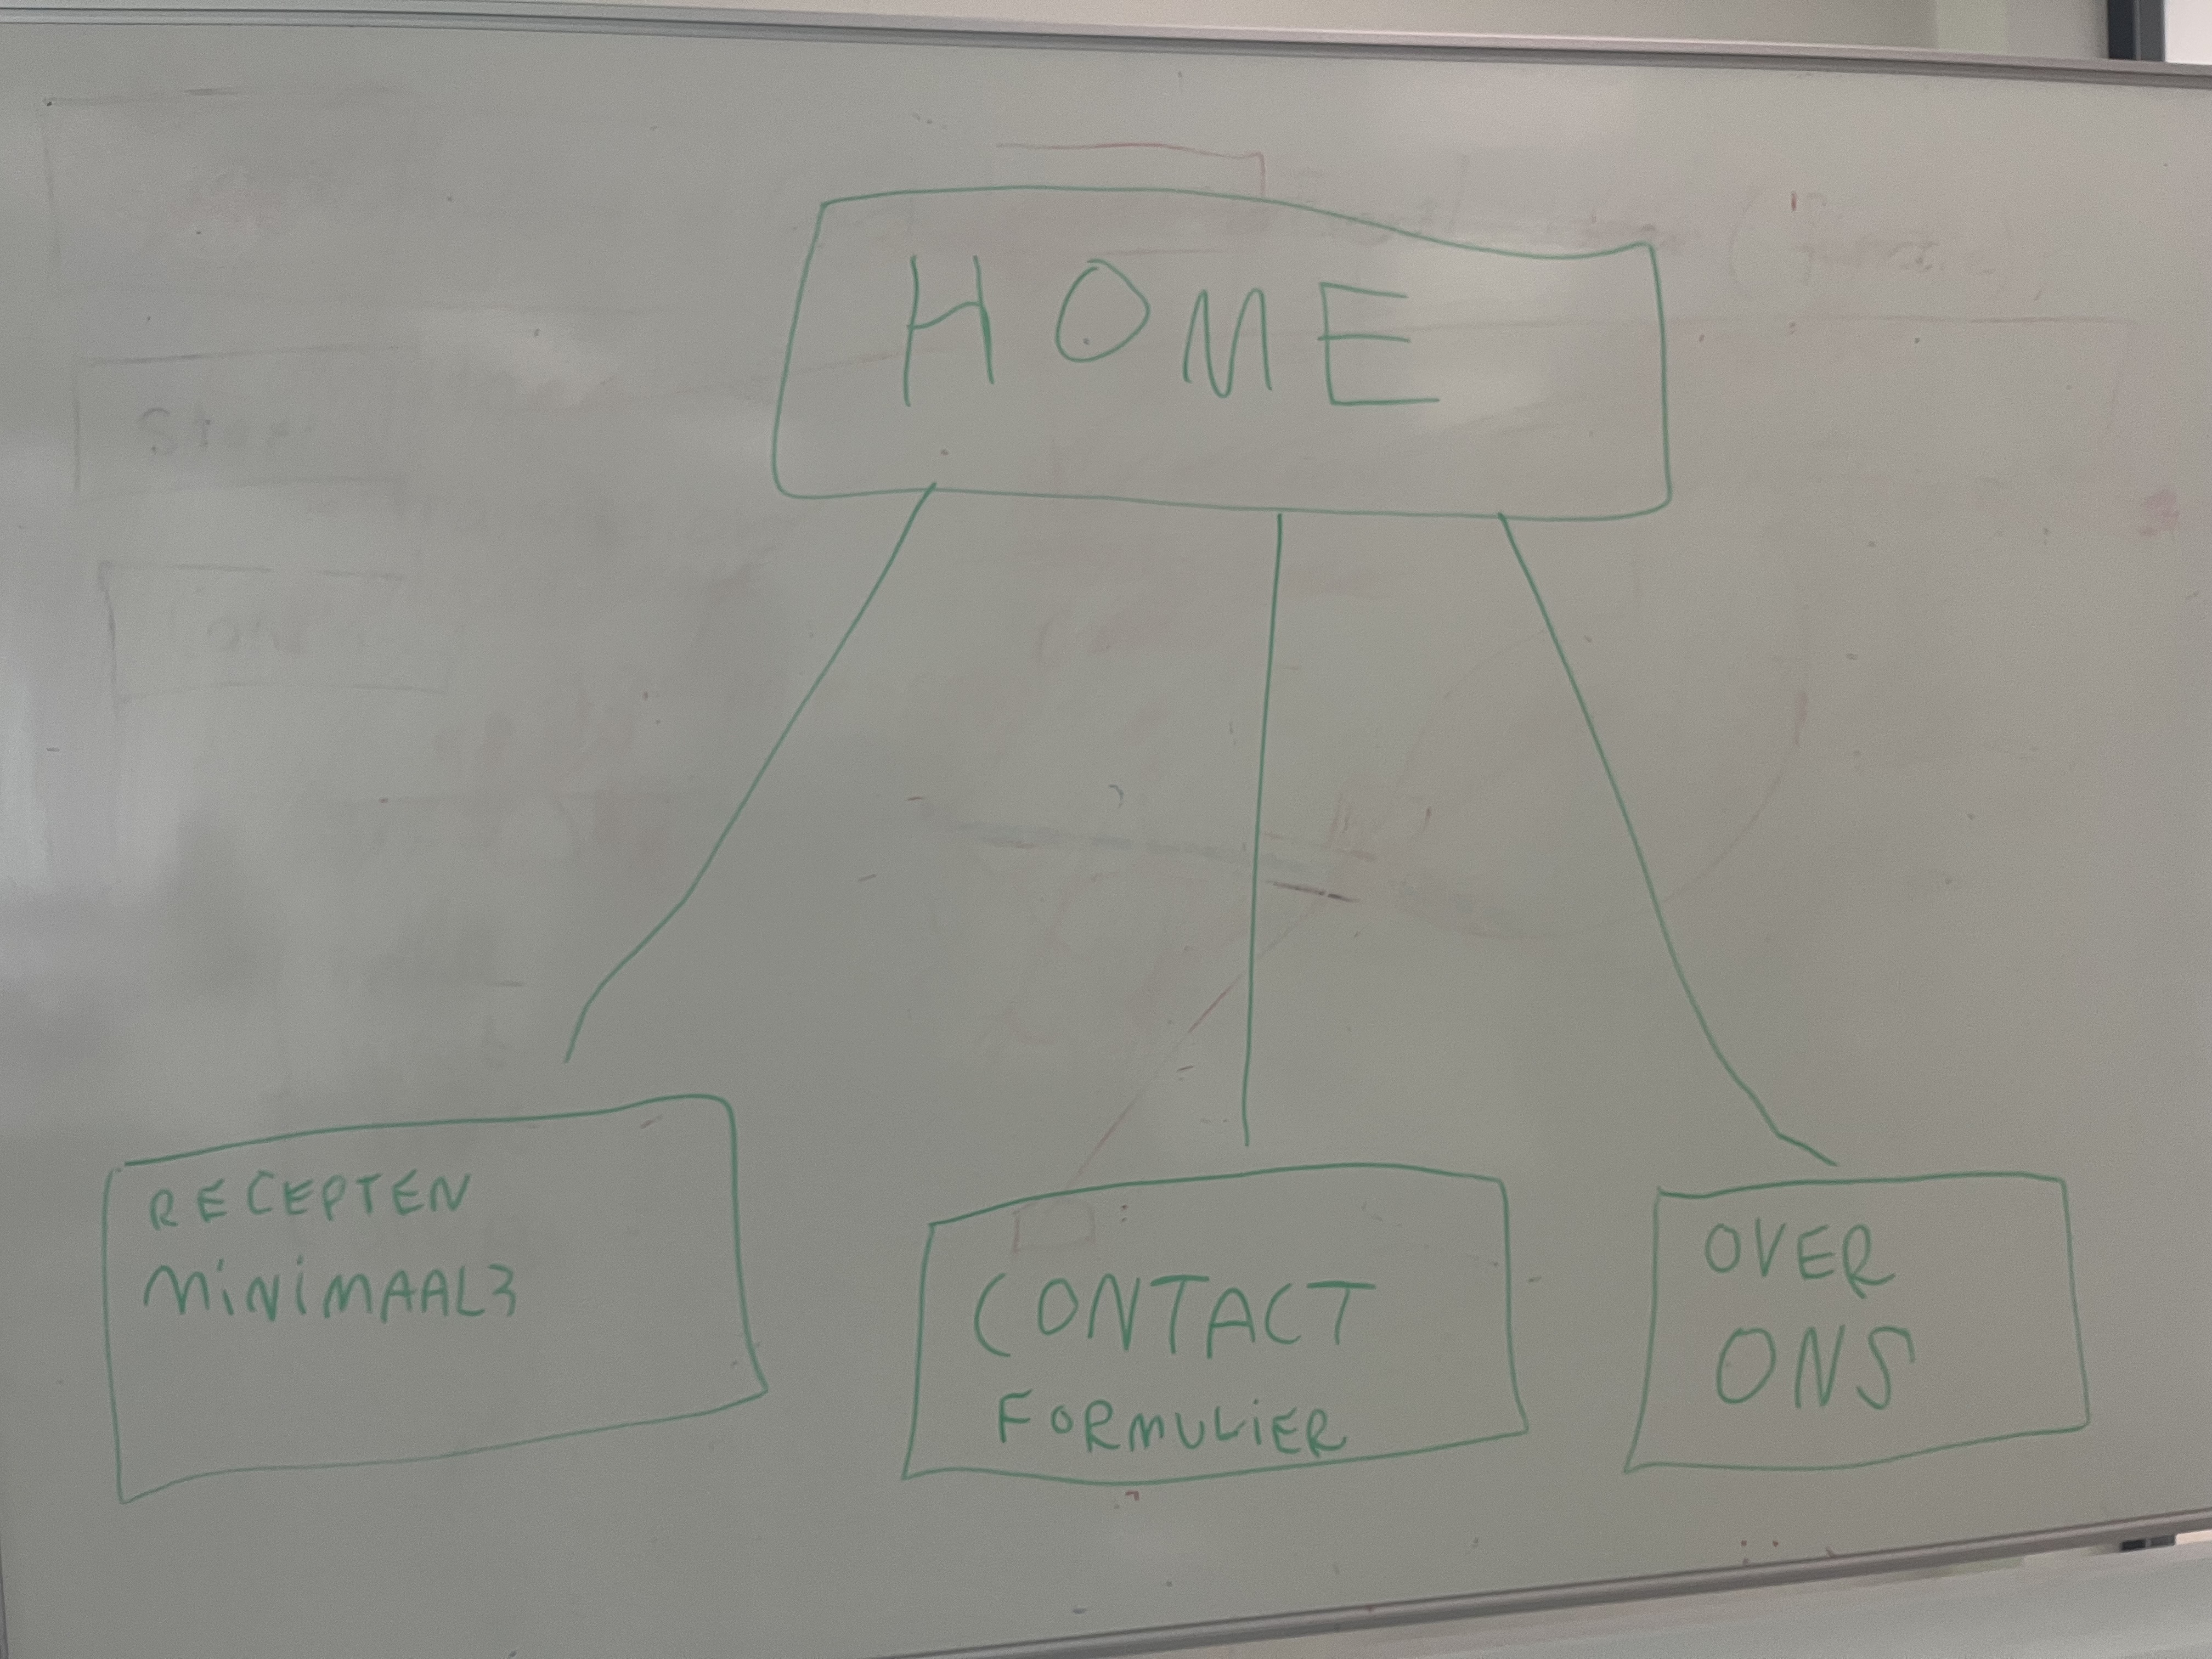 HOME
RECEPTEN
MINIMAAL3
CONTACT
FORMULIER
OVER
ONS